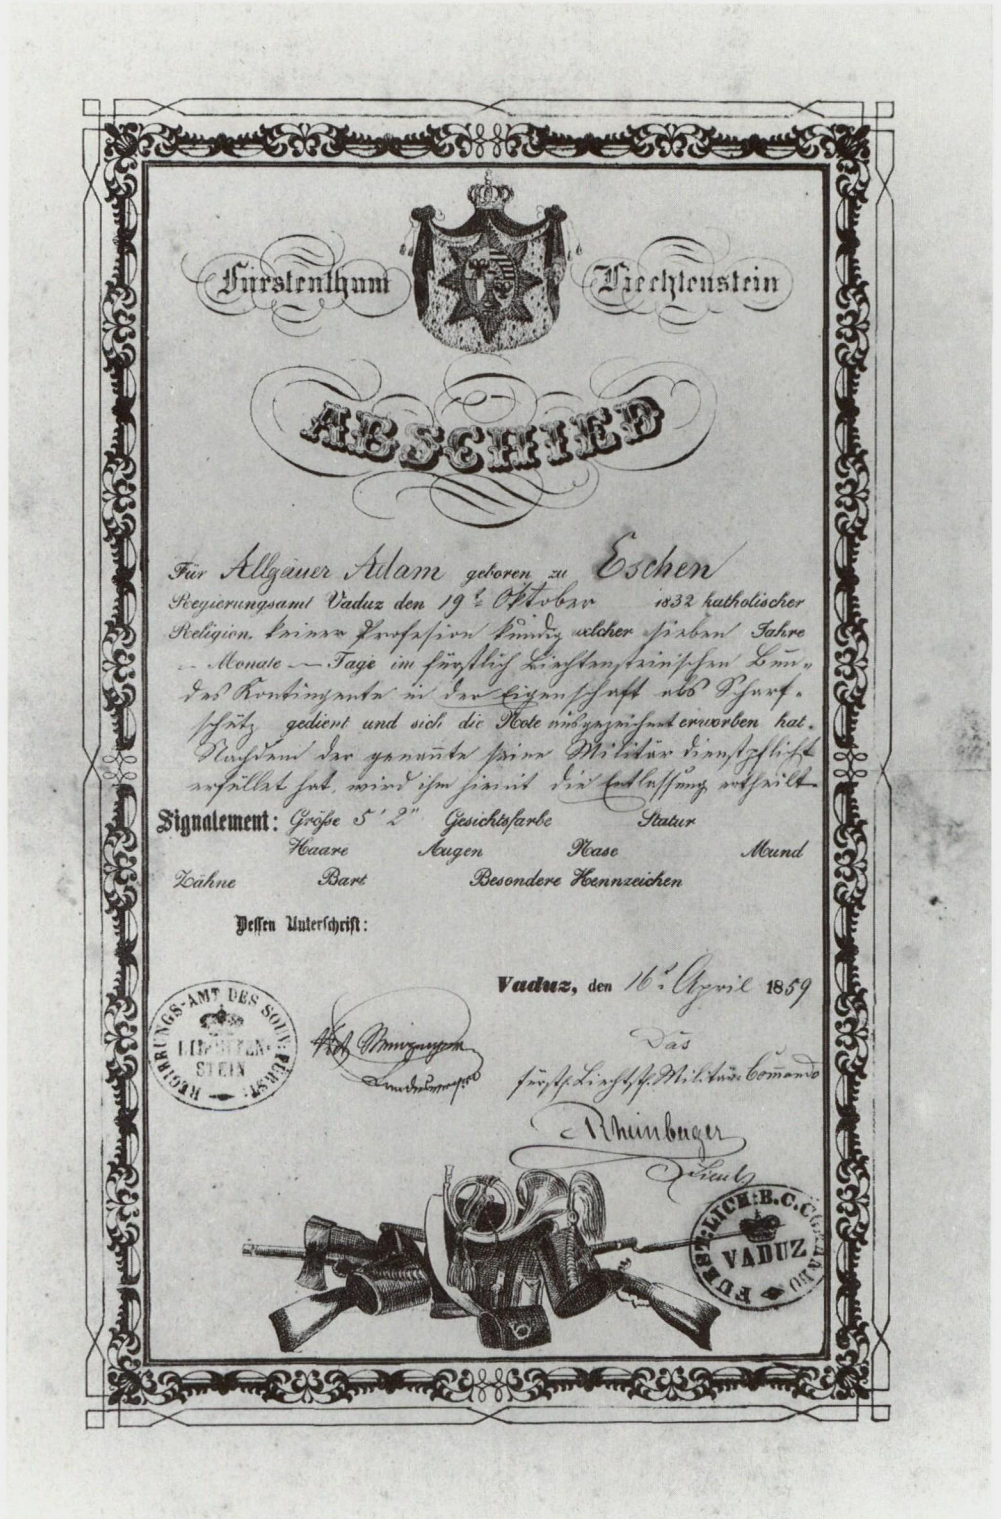 Fürstenthum Liechtenstein
ABSCHIED
Für Allgäuer Adam geboren zu Eschen
Regierungsamt Vaduz den 19t Oktober 1832 katholischer
Religion. keiner Profesion kundig welcher sieben Jahre
– Monate — Tage im fürstlich Liechtensteinischen Bun-
des Kontingente in der Eigenschaft als Scharf-
schütz gedient und sich die Note ausgezeichnet erworben hat.
Nachdem der genannte seine Militär dienstpflicht
erfüllet hat, wird ihm hiemit die Entlassung ertheilt
Signalement: Größe 5' 2" Gesichtsfarbe Statur
Haare Augen Nase Mund
Zähne Bart Besondere Kennzeichen
Dessen Unterschrift:
Vaduz, den 16t April 1859
REGIRUNGS-AMT DES SOUV: FÜRST:
LICHTEN-
STEIN
Das
fürstl. Liechtst. Militär Commando
Rheinberger
Lieut
FÜRST: LICH: B. C. COMMANDO
VADUZ